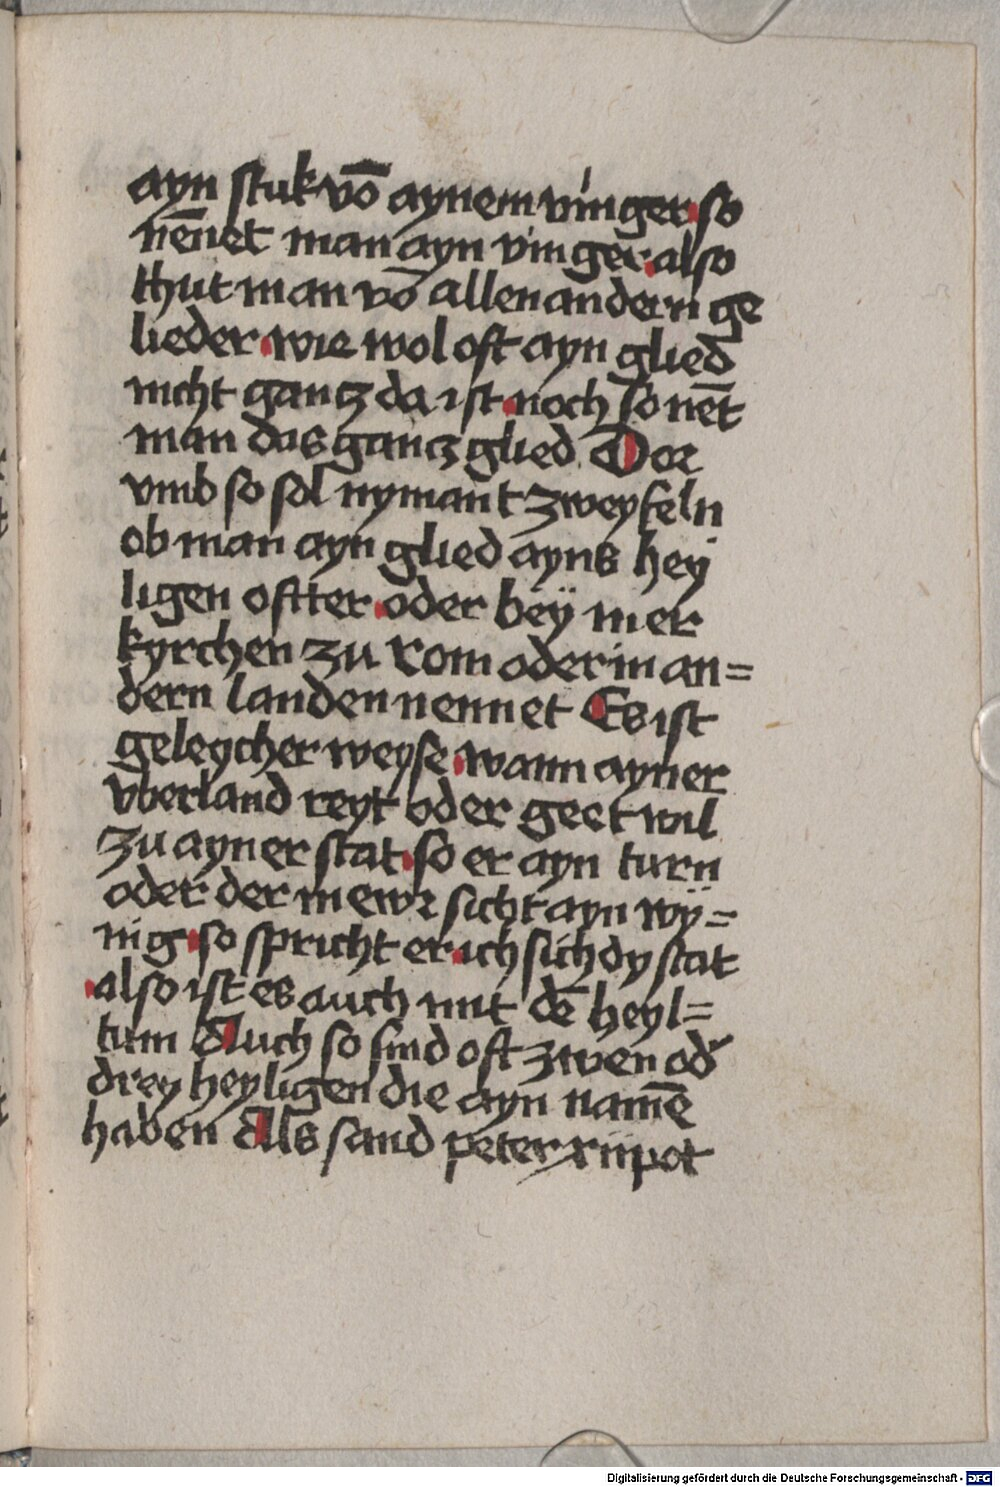 ayn stuk vō aynem vinger so
nēnet man ayn vinger also
thut man vō allen andern ge
lieder wie wol oft ayn glied
nicht gancz da ist noch so nēt
man das gancz glied Dor
vmb so sol nymant zweyfeln
ob man ayn glied ayns hey
ligen oftter oder beÿ mer
kyrchen zu Rom oder in an=
dern landen nennet Es ist
geleycher weyse wann ayner
vberland reyt oder geet wil
zu ayner stat so er ayn turn
oder der mewr sicht ayn wÿ=
nig so spricht er ich sich dy stat
also ist es auch mit dē heyl=
tum Auch so sind oft zwen od
drey heyligen die ayn namē
haben Als sand peter xiipot
Digitalisierung gefördert durch die Deutsche Forschungsgemeinschaft - DFG